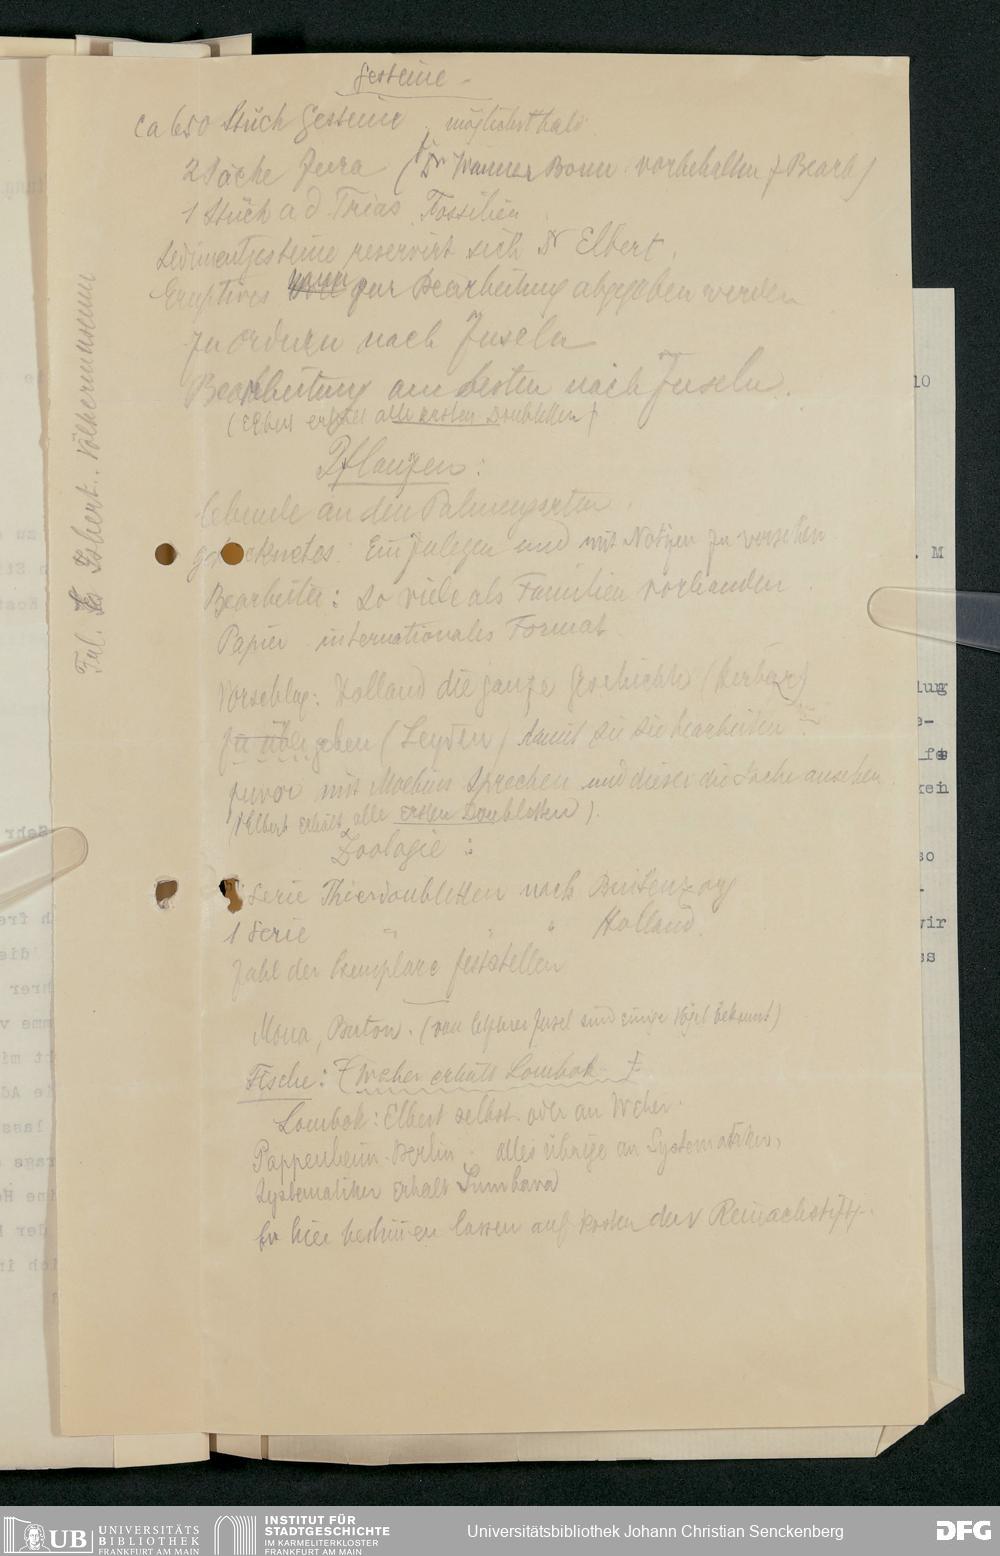 Gesteine -
ca 650 Stück Gesteine, möglichst bald
2 Säcke Jura (Dr Wanner Bonn vorbehalten z Bearb)
1 Stück a d Trias Fossilien
Sedimentgesteine reservirt sich Dr Elbert.
Eruptives kann zur Bearbeitung abgegeben werden
zu ordnen nach Inseln
Bearbeitung am besten nach Inseln.
(Elbert erhält alle ersten Doubletten)
Pflanzen:
lebende an den Palmengarten.
getrocknetes: Einzulegen und mit Notizen zu versehen
Bearbeiter: so viele als Familien vorhanden
Papier internationales Format
Vorschlag: Holland die ganze Geschichte (Herbar)
zu übergeben (Leyden) damit sie sie bearbeiten
zuvor mit Moebius sprechen und dieser die Sache ansehen
(Elbert erhält alle ersten Doubletten).
Zoologie:
1 Serie Thierdoubletten nach Buitenzorg
1 Serie " " " Holland.
Zahl der Exemplare feststellen
Mona, Buton. (von letzterer Insel sind einige Vögel bekannt)
Fische: (Weber erhält Lombok)
Lombok: Elbert selbst oder an Weber.
Pappenheim-Berlin. alles übrige an Systematiker,
Systematiker erhält Sumbawa
hier bestimmen lassen auf Kosten der Reinachstiftg.
Frl. Elbert.. Völkermuseum
10
. M
UB
UNIVERSITÄTS
BIBLIOTHEK
FRANKFURT AM MAIN
INSTITUT FÜR
STADTGESCHICHTE
IM KARMELITERKLOSTER
FRANKFURT AM MAIN
Universitätsbibliothek Johann Christian Senckenberg
DFG